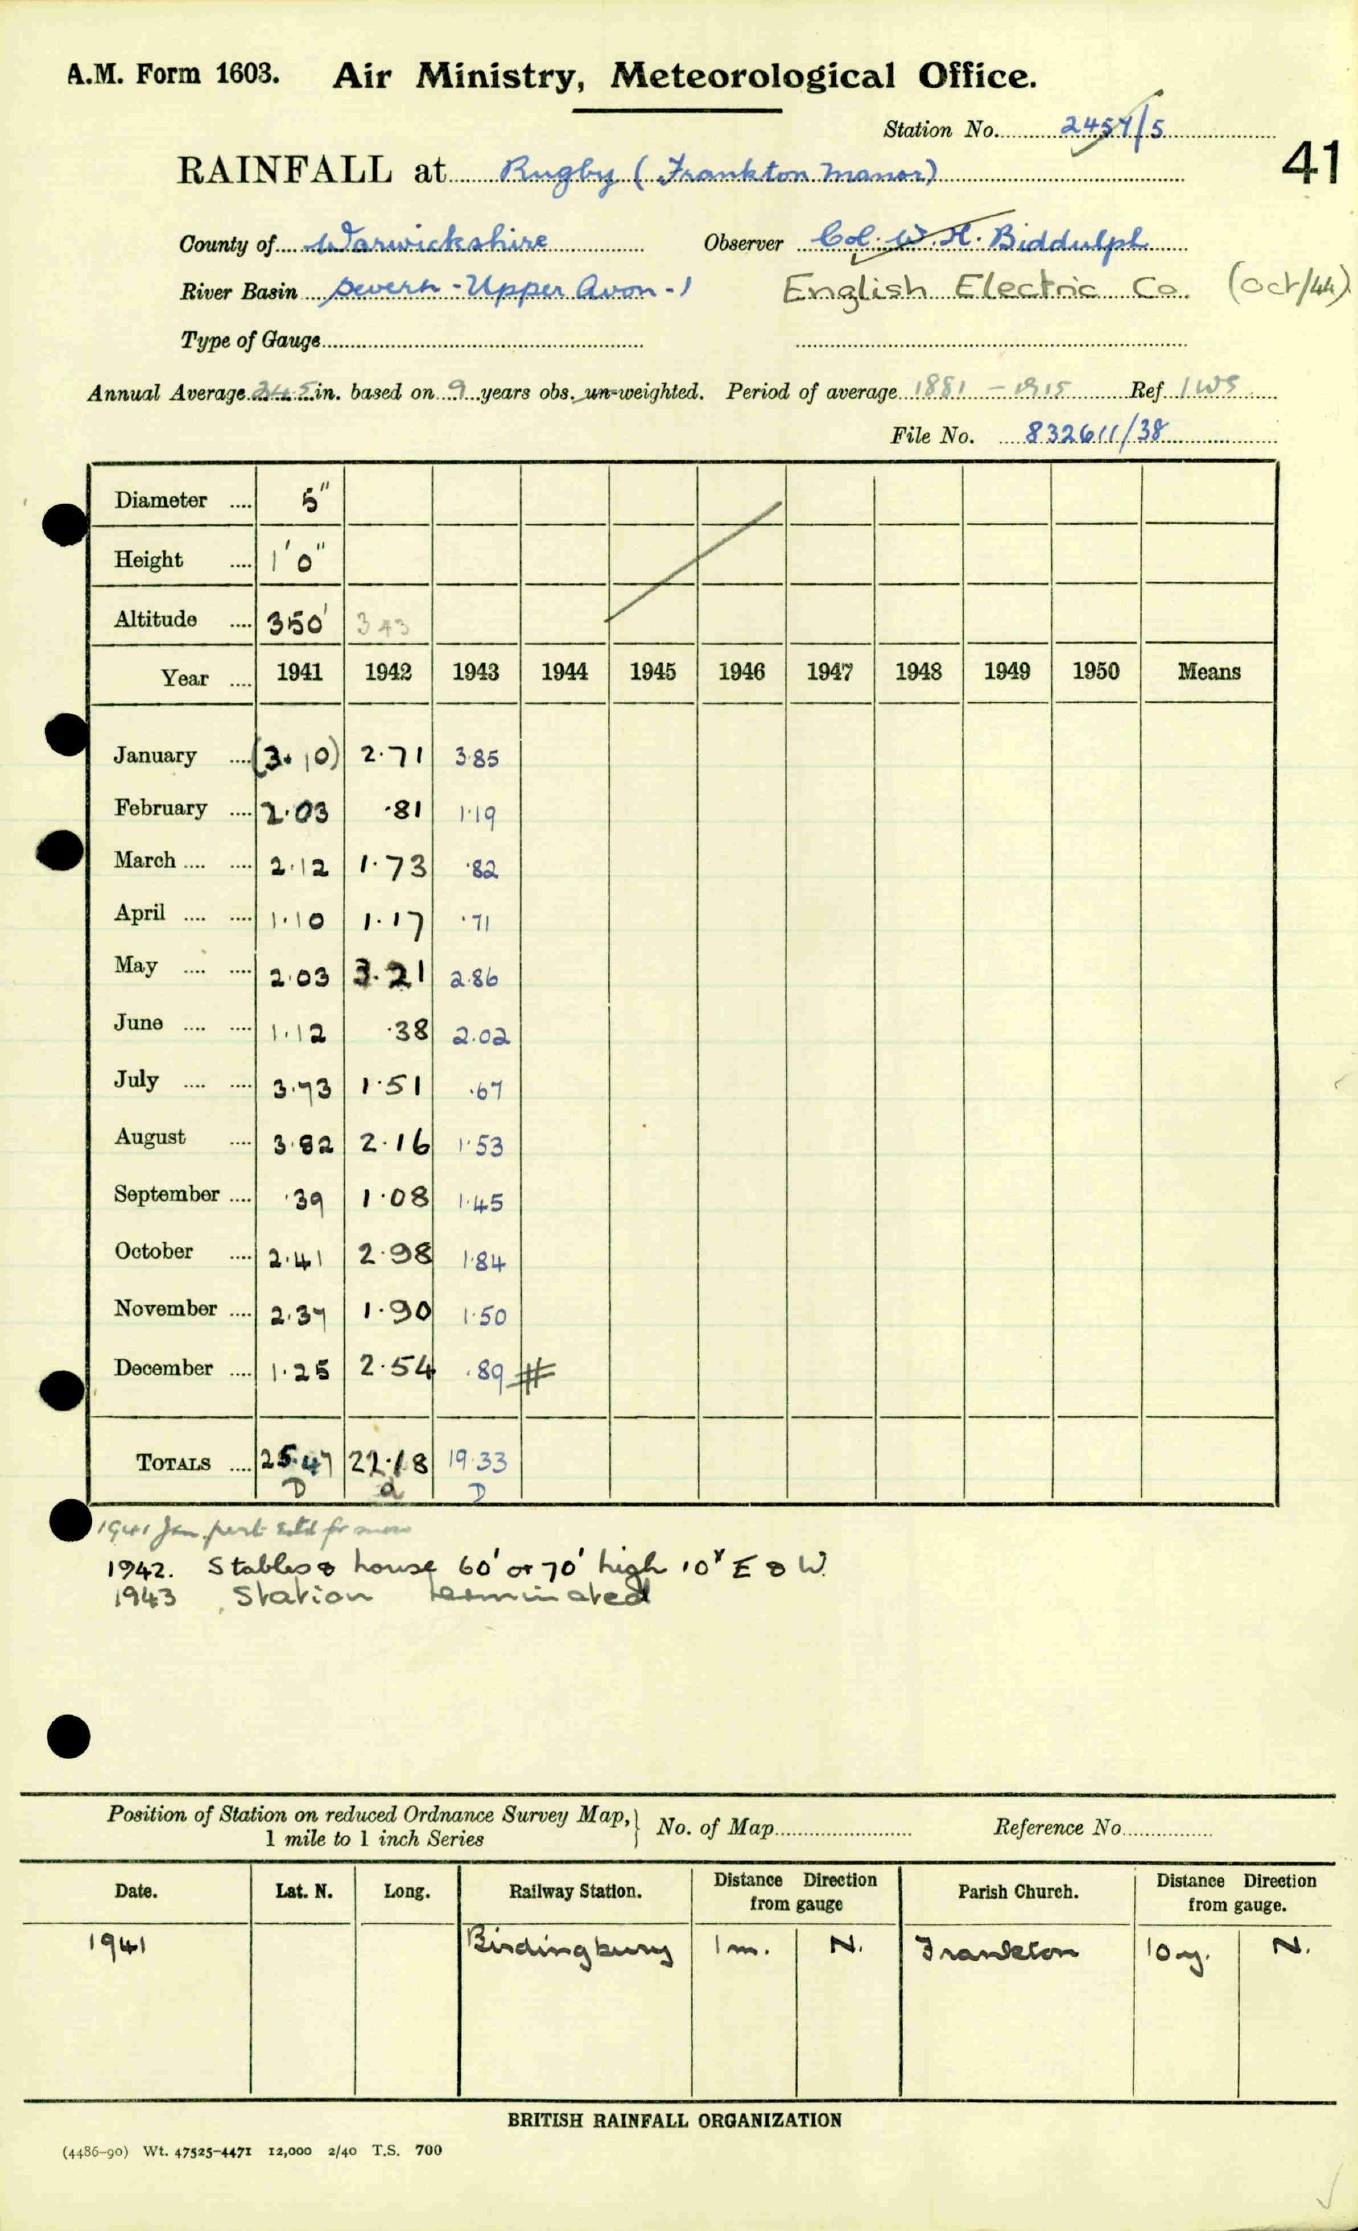 A.M. Form 1603. Air Ministry, Meteorological Office.
Station No. 2457/5
41
RAINFALL at Rugby (Frankton Manor)
County of Warwickshire Observer Col. W. H. Biddulph
River Basin Severn - Upper Avon - 1 English Electric Co. (Oct/44)
Type of Gauge
Annual Average in. based on 9 years obs. un-weighted. Period of average 1881 - 1915 Ref
File No. 832611/38
Diameter .... 5"
Height .... 1'0"
Altitude .... 350' 343
Year .... 1941 1942 1943 1944 1945 1946 1947 1948 1949 1950 Means
January .... (3.10) 2.71 3.85
February .... 2.03 .81 1.19
March .... .... 2.12 1.73 .82
April .... .... 1.10 1.17 .71
May .... .... 2.03 3.21 2.86
June .... .... 1.12 .38 2.02
July .... .... 3.73 1.51 .67
August .... 3.82 2.16 1.53
September .... .39 1.08 1.45
October .... 2.41 2.98 1.84
November .... 2.37 1.90 1.50
December .... 1.25 2.54 .89 #
TOTALS .... 25.47 22.18 19.33
D D
1941 Jan. part estd for snow
1942. Stables & house 60' or 70' high 10Y E & W.
1943 Station terminated
Position of Station on reduced Ordnance Survey Map, } No. of Map Reference No
1 mile to 1 inch Series
Date. Lat. N. Long. Railway Station. Distance Direction from gauge Parish Church. Distance Direction from gauge.
1941 Birdingbury 1 m. N. Frankton 10 y. N.
BRITISH RAINFALL ORGANIZATION
(4486-90) Wt. 47525-4471 12,000 2/40 T.S. 700